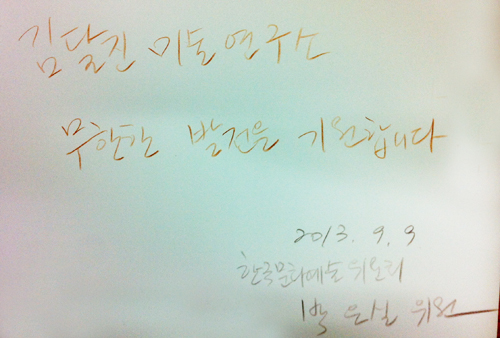 김달진 미술연구소
무한한 발전을 기원합니다
2013. 9. 9
한국문화예술위원회
박은실 위원